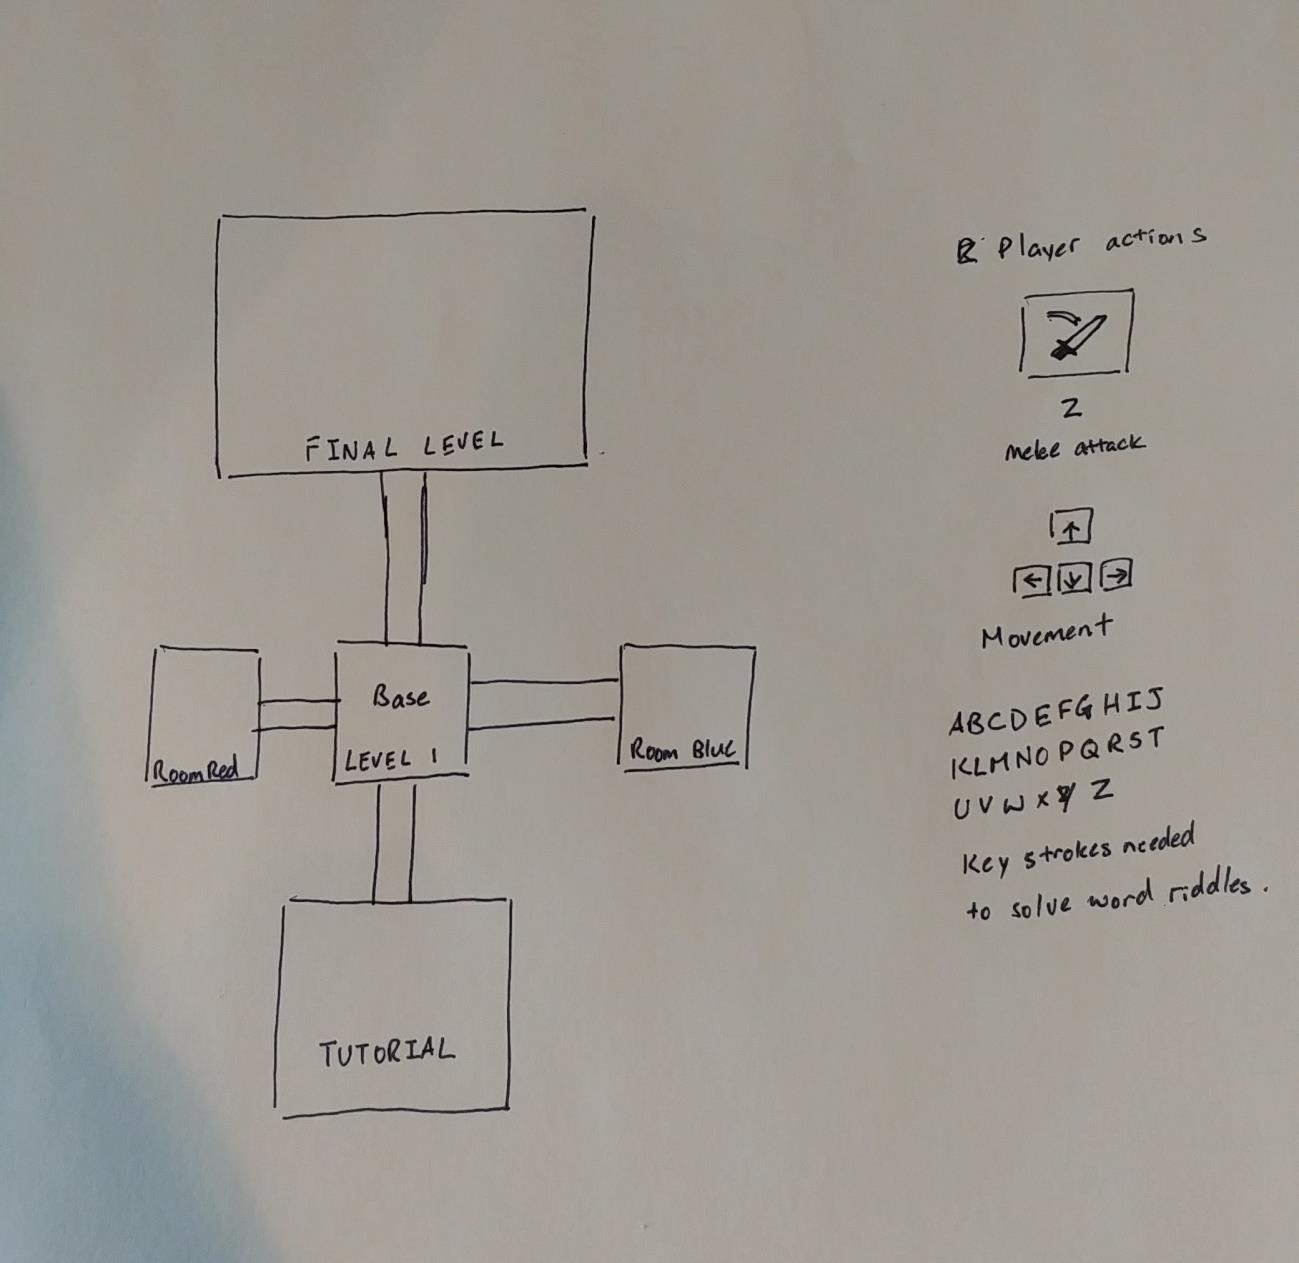 FINAL LEVEL
Base
LEVEL 1
Room Red
Room Blue
TUTORIAL
Player actions
Z
melee attack
↑
← ↓ →
Movement
ABCDEFGHIJ
KLMNOPQRST
UVWXYZ
Key strokes needed
to solve word riddles.